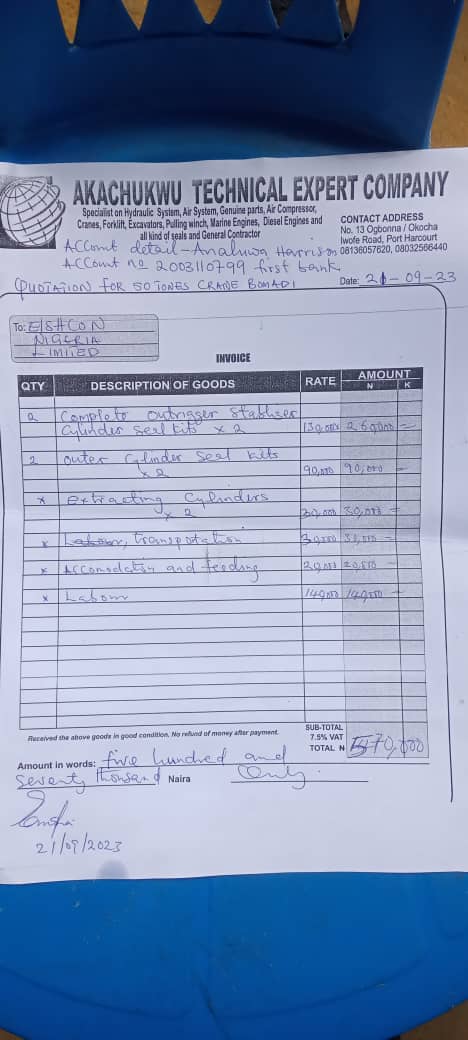 AKACHUKWU TECHNICAL EXPERT COMPANY
Specialist on Hydraulic System, Air System, Genuine parts, Air Compressor,
Cranes, Forklift, Excavators, Pulling winch, Marine Engines, Diesel Engines and
all kind of seals and General Contractor
CONTACT ADDRESS
No. 13 Ogbonna / Okocha
Iwofe Road, Port Harcourt
08136057620, 08032566440
ACComt detail - Harrison
ACCount no 2003110799 first bank
Date: 21-09-23
QUOTATION FOR 50 TONES CRANE BOMADI
To: ESHCON
NIGERIA
LIMITED
INVOICE
QTY DESCRIPTION OF GOODS RATE AMOUNT
N K
2 Complete outrigger stabliser
Cylinder seal kits x 2 130,000 260,000 =
2 outer Cylinder Seal kits
x 2 90,000 90,000 =
* extracting Cylinders
x 2 30,000 30,000 =
* Labour, transpotation 30,000 30,000 =
* Accomodation and feeding 20,000 20,000 =
* Labour 140,000 140,000 =
Received the above goods in good condition, No refund of money after payment.
SUB-TOTAL
7.5% VAT
TOTAL N 570,000
Amount in words: five hundred and
Seventy thousand Naira Only.
21/09/2023